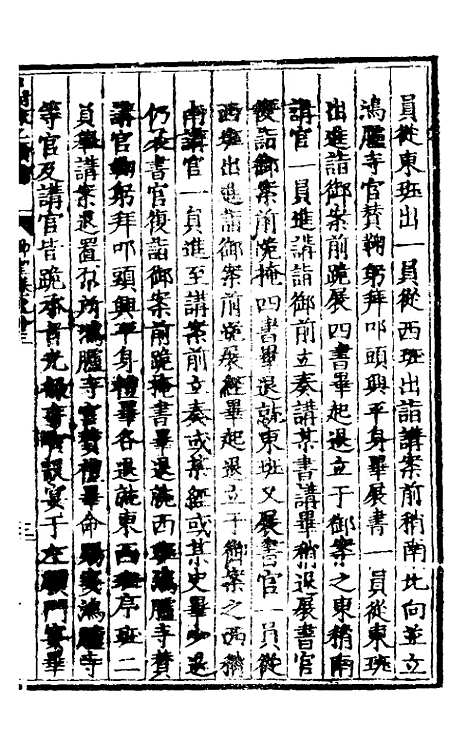 員從東班出一員從西班出詣講案前稍南北向並立
鴻臚寺官贊鞠躬拜叩頭興平身畢展書一員從東班
出進詣御案前跪展四書畢起退立于御案之東稍南
講官一員進詣御前立奏講某書講畢稍退展書官
復詣御案前跪掩四書畢退就東班又展書官一員從
西班出進詣御案前跪展經畢起退立于御案之西稍
南講官一員進至講案前立奏或某經或某史畢少退
仍展書官復詣御案前跪掩書畢退就西班鴻臚寺贊
講官鞠躬拜叩頭興平身禮畢各退就東西班序班二
員舉講案退置原所鴻臚寺官贊禮畢命賜宴鴻臚寺
等官及講官皆跪承旨光祿寺設宴于左順門宴畢